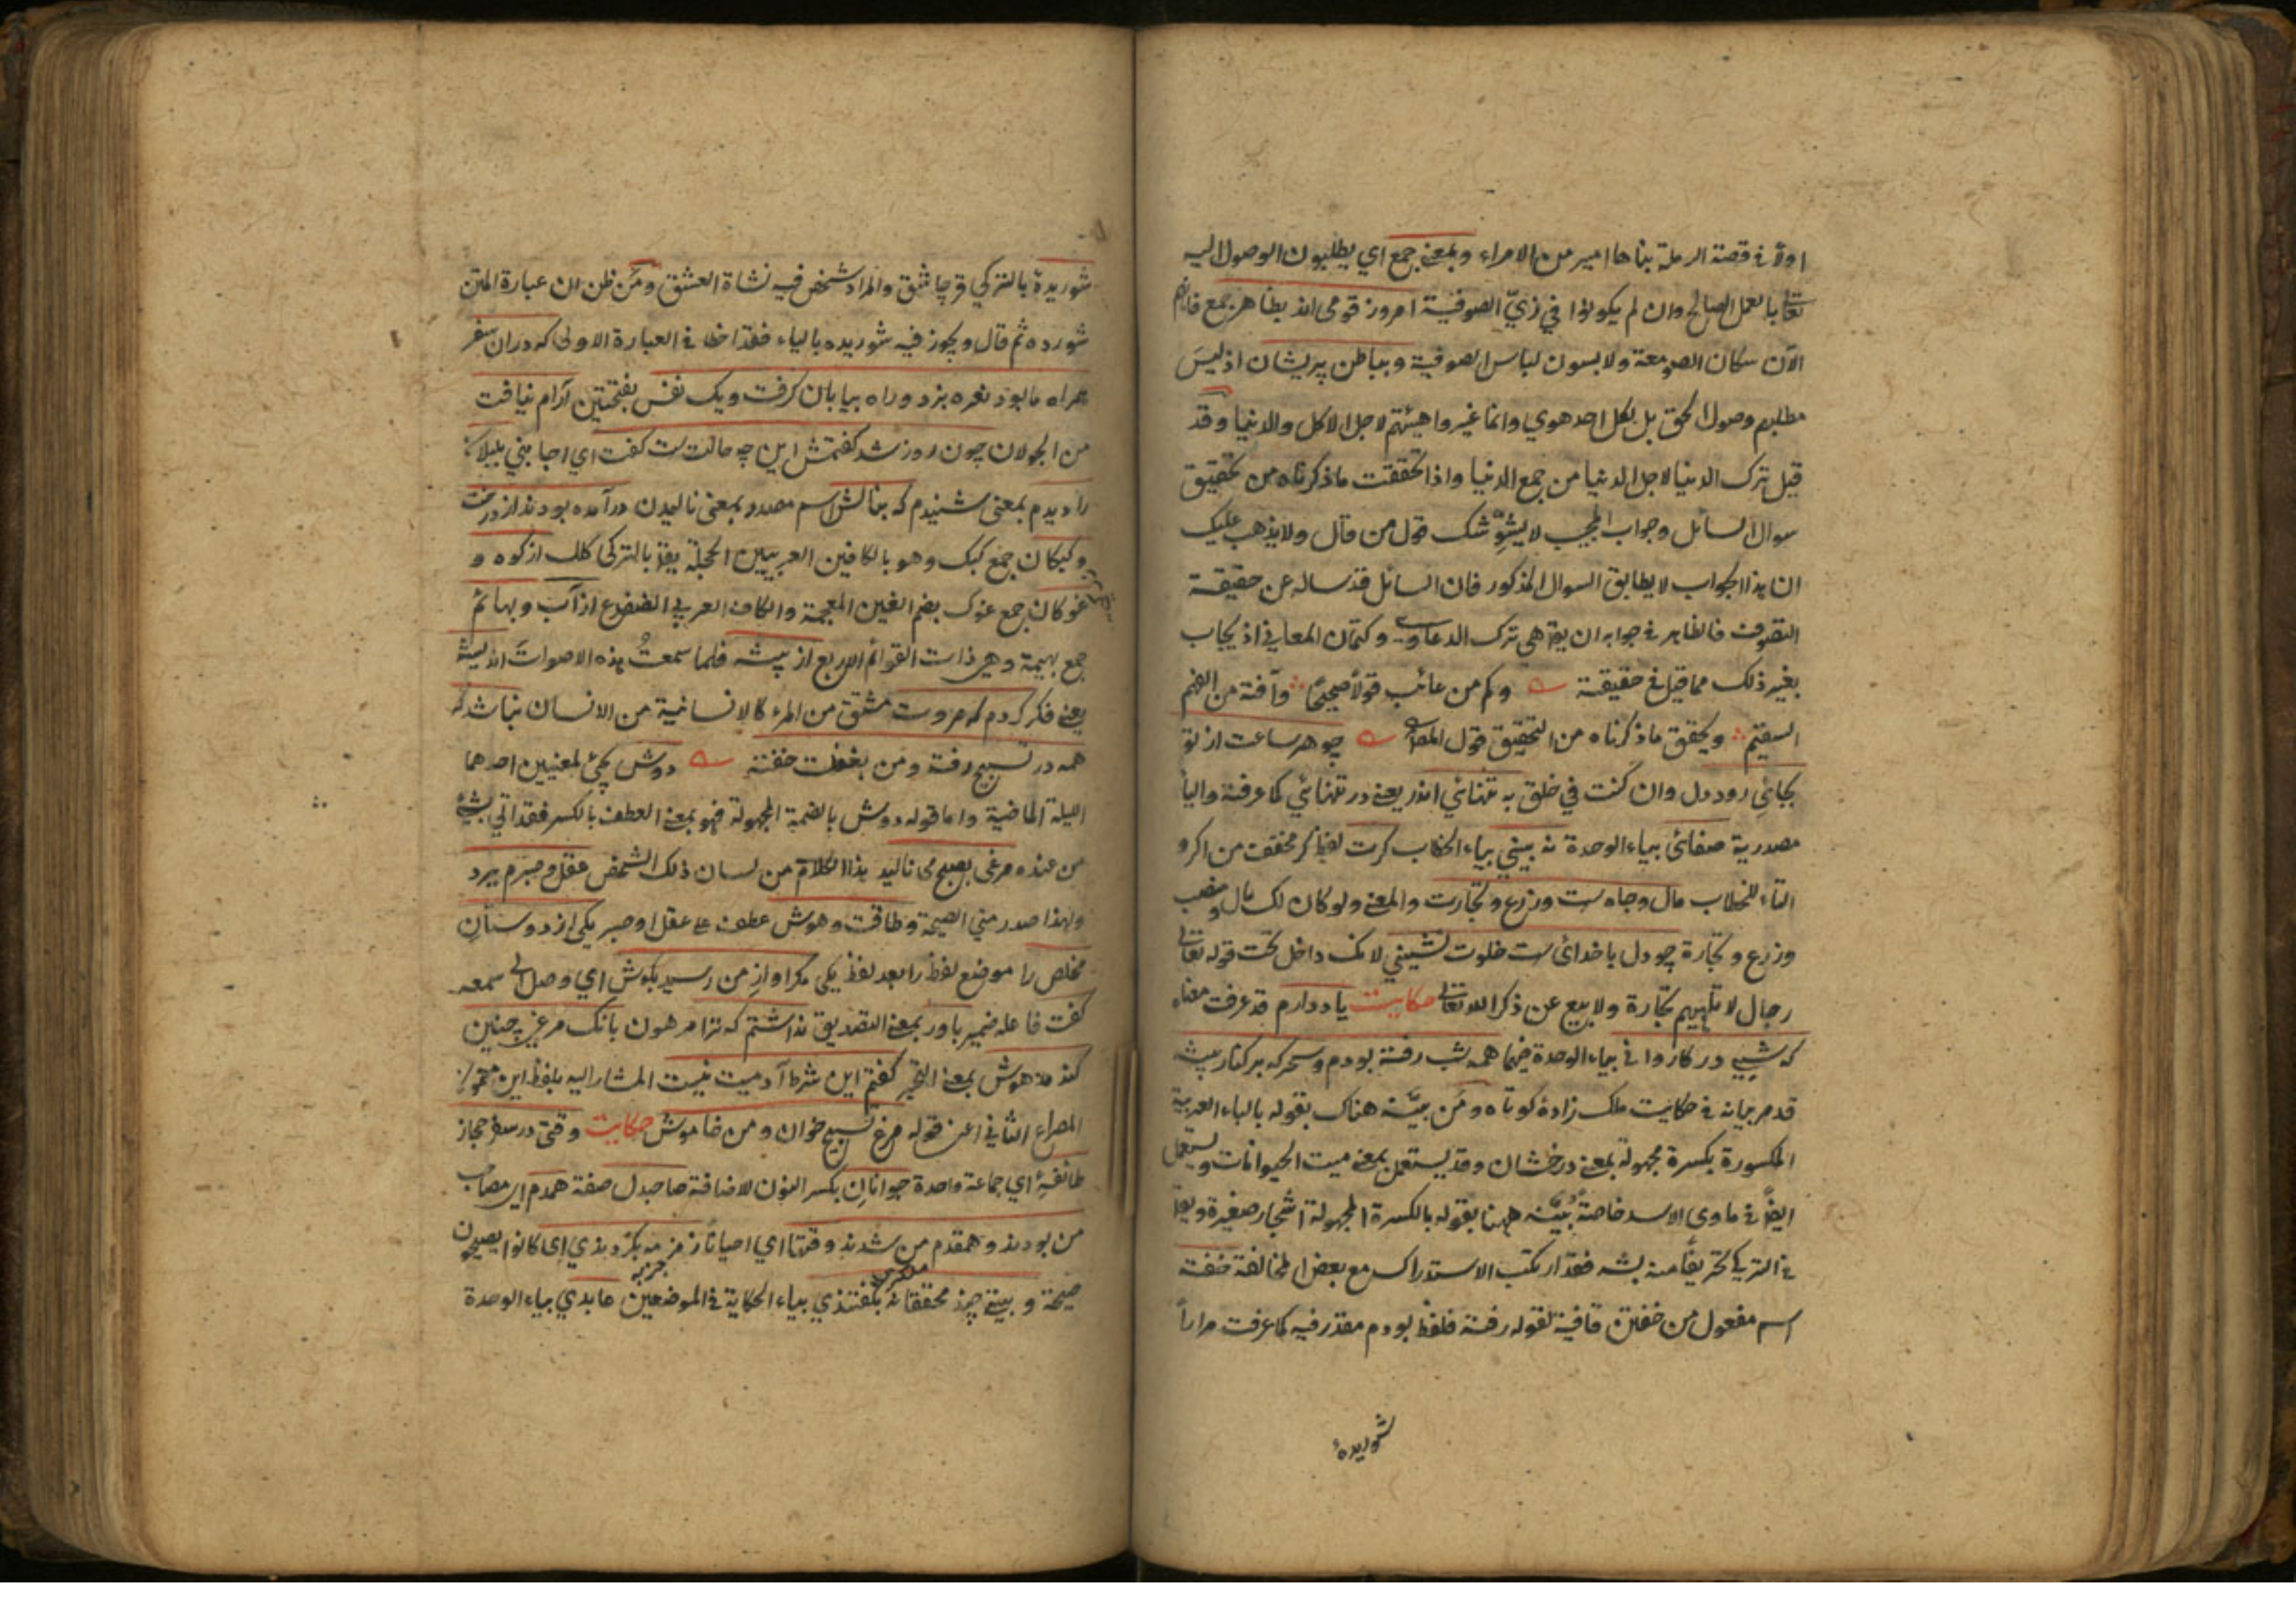 اولا في قصة الرملة بناها امير من الامراء وبمعنى جمع اي يطلبون الوصول اليه
تعالى بالعمل الصالح وان لم يكونوا في زيّ الصوفية امروز قومى اند بظاهر جمع فانهم
الآن سكان الصومعة ولابسون لباس الصوفية وبباطن پريشان اذ ليسَ
مطلبهم وصول الحق بل لكل احد هوي وانما غيروا هيئتهم لاجل الاكل والدنيا وقد
قيل ترك الدنيا لاجل الدنيا من جمع الدنيا واذا تحققت ما ذكرناه من تحقيق
سوال السائل وجواب المجيب لا يشوّشك قول من قال ولا يذهب عليك
ان هذا الجواب لا يطابق السوال المذكور فان السائل قد ساله عن حقيقة
التصوف فالظاهر في جوابه ان يقال هى ترك الدعاوى وكتمان المعاني اذ يجاب
بغير ذلك مما قيل في حقيقته وكم من عائب قولاً صحيحًا وآفته من الفهم
السقيم ويحقق ما ذكرناه من التحقيق قول المص چو هر ساعت از تو
بجائي رود دل وان كنت في خلق به تنهائي اندر يعنى در تنهائي كما عرفته واليا
مصدرية صفائى بياء الوحدة نه بيني بياء الخطاب كرت لفظ كر مخفف من اكر و
التاء للخطاب مال وجاه ست وزرع وتجارت والمعنى ولو كان لك مال ومنصب
وزرع وتجارة چو دل با خدائ ست خلوت نشيني لانك داخل تحت قوله تعالى
رجال لا تلهيهم تجارة ولا بيع عن ذكر الله تعالى حكايت ياد دارم قد عرفت معناه
كه شبي در كاروانى بياء الوحدة فيهما همه شب رفته بودم وسحركه بر كنار بيشه
قد مر بيانه في حكايت ملك زادهٔ كوتاه ومَن بيّنه هناك بقوله بالباء العربية
المكسورة بكسرة مجهولة بمعنى درخشان وقد يستعمل بمعنى ميت الحيوانات ويستعمل
ايضاً في ماوى الاسد خاصة بُيّنه ههنا بقوله بالكسرة المجهولة اشجار صغيرة ويقال
في التركي تحريفاً منه بشه فقد ارتكب الاستدراك مع بعض المخالفة خفته
اسم مفعول من خفتن قافية لقوله رفته فلفظ بودم مقدر فيه كما عرفت مراراً
شوريدهٔ
شوريدهٔ بالتركي قرچاشق والمراد شخص فيه نشاة العشق ومَن ظن ان عبارة المتن
شورده ثم قال ويجوز فيه شوريده بالياء فقد اخطا في العبارة الاولى كه دران سفر
همراه ما بود نعره بزد وراه بيابان كرفت ويك نفس بفتحتين آرام نيافت
من الجولان چون روز شد كفتمش اين چه حالت ست كفت اي اجابني بلبلانـ
را ديدم بمعنى شنيدم كه بنالش اسم مصدر بمعنى ناليدن در آمده بودند از درخت
وكبكان جمع كبك وهو بالكافين العربيين الحجلة يقال بالتركى كلك از كوه و
غوكان جمع غوك بضم الغين المعجمة والكاف العربي الضفدع از آب وبهائم
جمع بهيمة وهى ذات القوائم الاربع از بيشه فلما سمعتُ هذه الاصوات انديشه
يعنى فكر كردم كه مروت مشتق من المرء كالانسانية من الانسان نباشد كه
همه در تسبيح رفته ومَن بغفلت خفته دوش يجئ لمعنيين احدهما
الليلة الماضية واما قوله دوش بالضمة المجهولة فهو بمعنى العطف بالكسر فقد اتي بشئ
من عنده مرغى بصبح مى ناليد هذا الكلام من لسان ذلك الشخص عقل وصبرم ببرد
ولهذا صدر مني الصيحة وطاقت وهوش عطف على عقل او صبر يكى از دوستان
مخلص را موضع لفظ را بعد لفظ يكى مكر آواز من رسيد بكوش اي وصل الى سمعه
كفت فاعله ضمير باور بمعنى التصديق نداشتم كه ترا مرهون بانك مرغى چنين
كند مدهوش بمعنى التحير كفتم اين شرط آدميت نيست المشار اليه بلفظ اين مضمون
المصراع الثاني اعنى قوله مرغ تسبيح خوان ومن خاموش حكايت وقتى در سفر حجاز
طائفهٔ اي جماعة واحدة جوانان بكسر النون للاضافة صاحبدل صفته همدم اي مصاحب
من بودند وهمقدم من شدند وقتها اي احياناً زمزمه بكردندي اي كانوا يصيحون
صيحة وبيتى چند محققانه بكفتندي بياء الحكاية في الموضعين عابدي بياء الوحدة